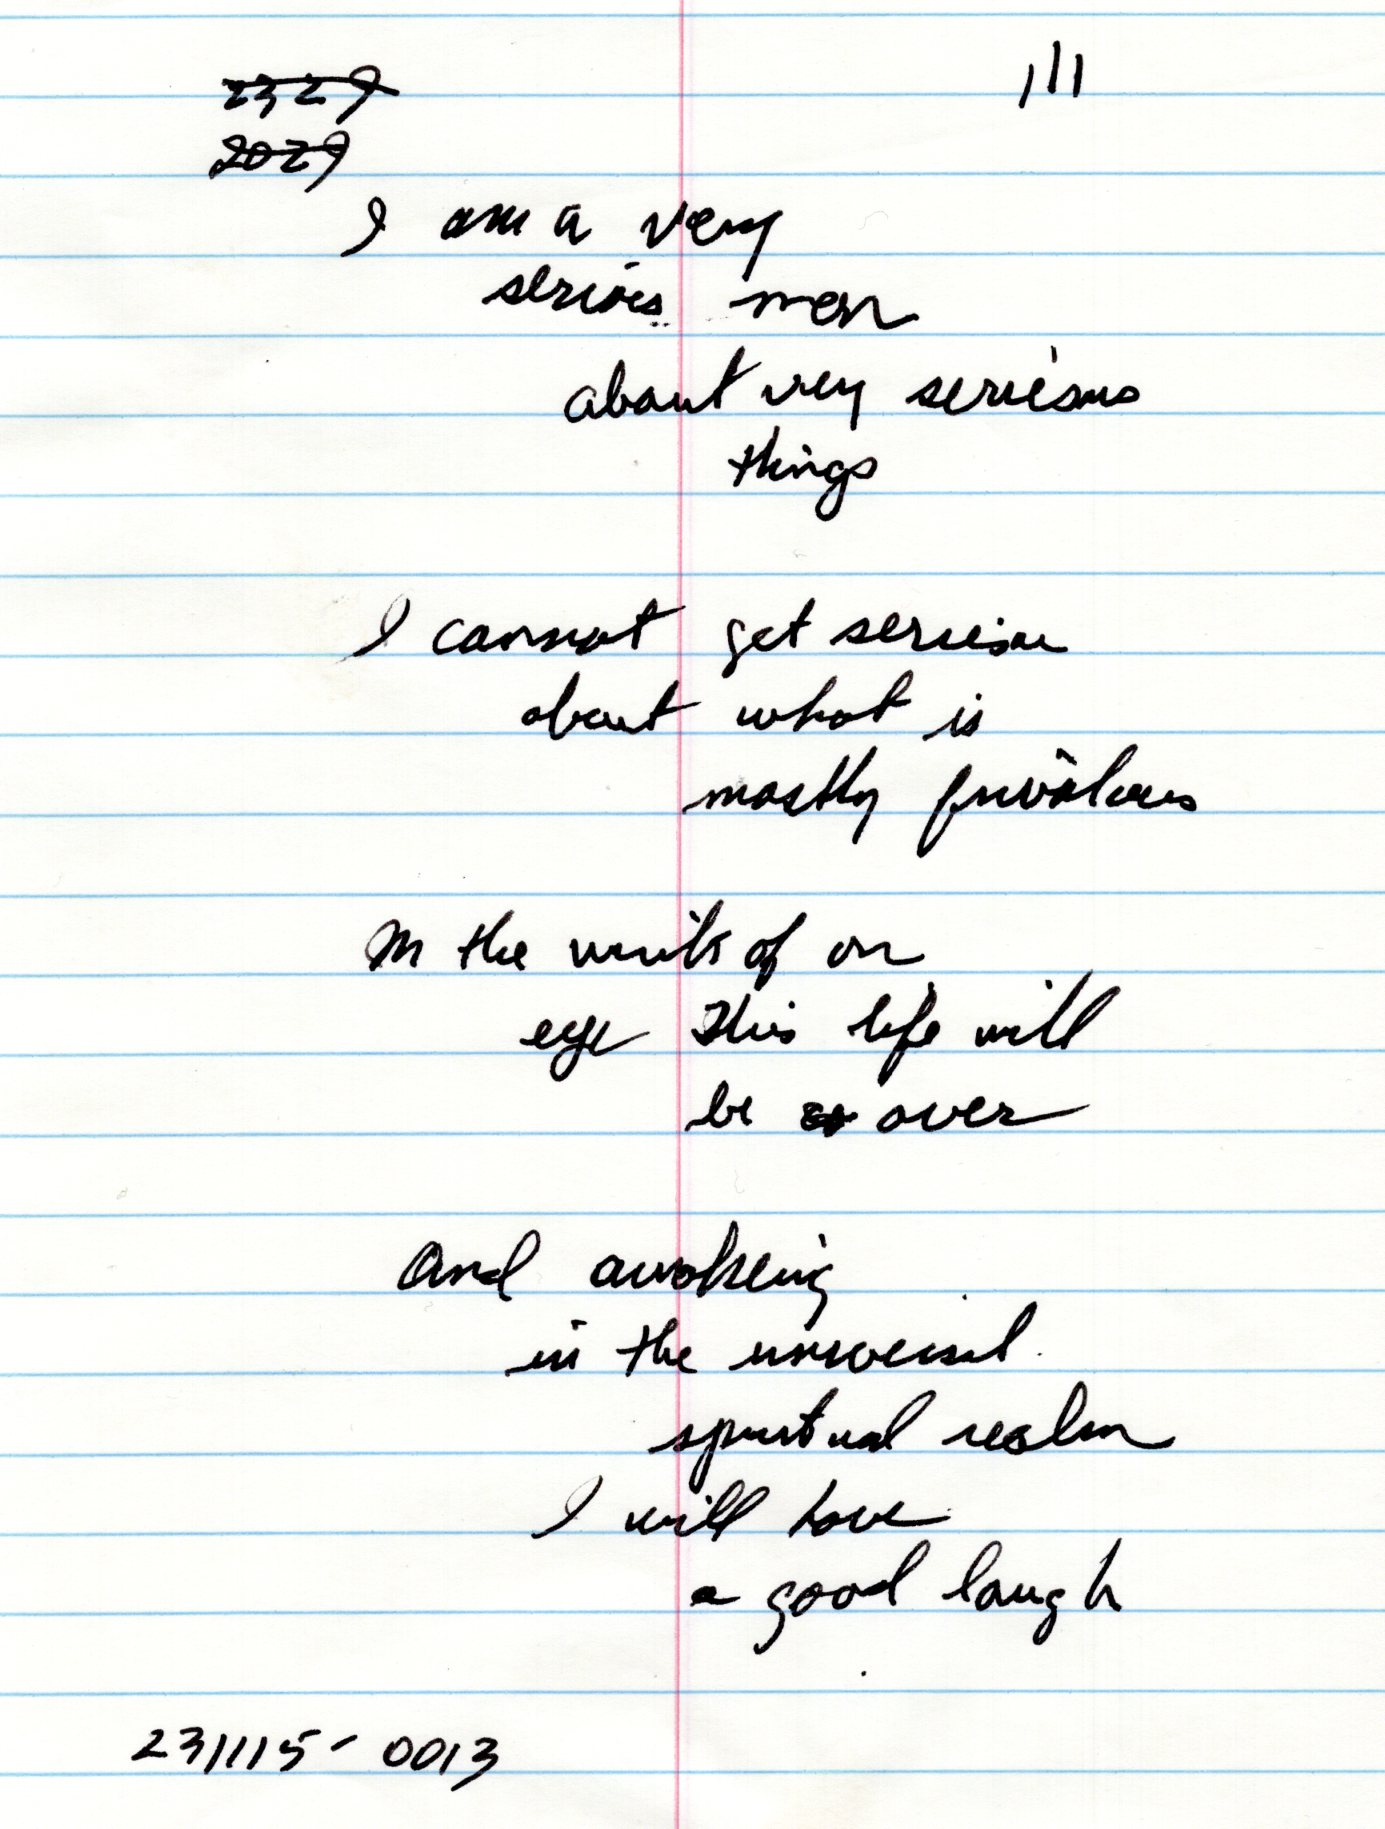 2329
111
2029
I am a very
serious man
about very serious
things
I cannot get serious
about what is
mostly frivolous
In the wink of an
eye this life will
be over
And awaking
in the universal
spiritual realm
I will have
a good laugh
231115 - 0013